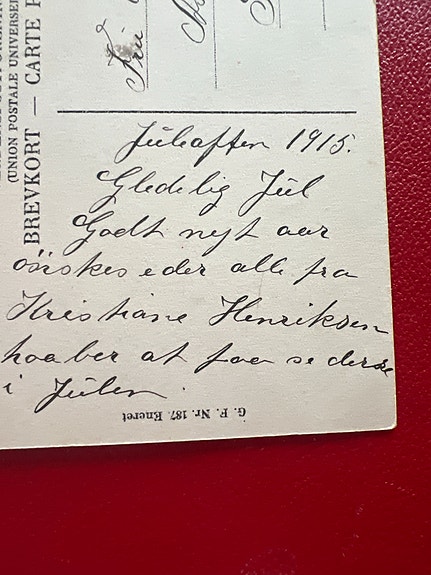 (UNION POSTALE UNIVERSE
BREVKORT — CARTE P
Frü
Juleaften 1915.
Gledelig Jul
Godt nyt aar
önskes eder alle fra
Kristiane Henriksen
haaber at faa se derse
i Julen.
G. F. Nr. 187. Eneret